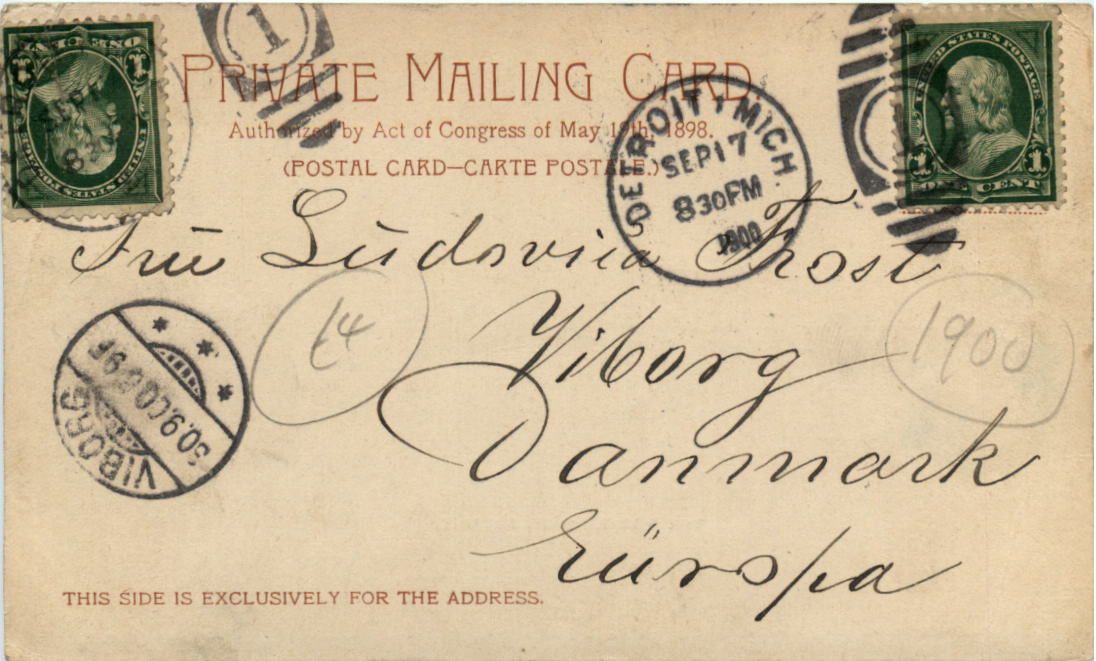 PRIVATE MAILING CARD.
Authorized by Act of Congress of May 19th, 1898.
(POSTAL CARD—CARTE POSTALE.)
ONE CENT
UNITED STATES POSTAGE
1 1
1
DETROIT, MICH.
SEP 17
8 30 PM
1900
UNITED STATES POSTAGE
1 1
ONE CENT
Frü Lüdovica Frost
Viborg
Danmark
Eüropa
64
1900
VIBORG
30.9.00 6-9F
THIS SIDE IS EXCLUSIVELY FOR THE ADDRESS.